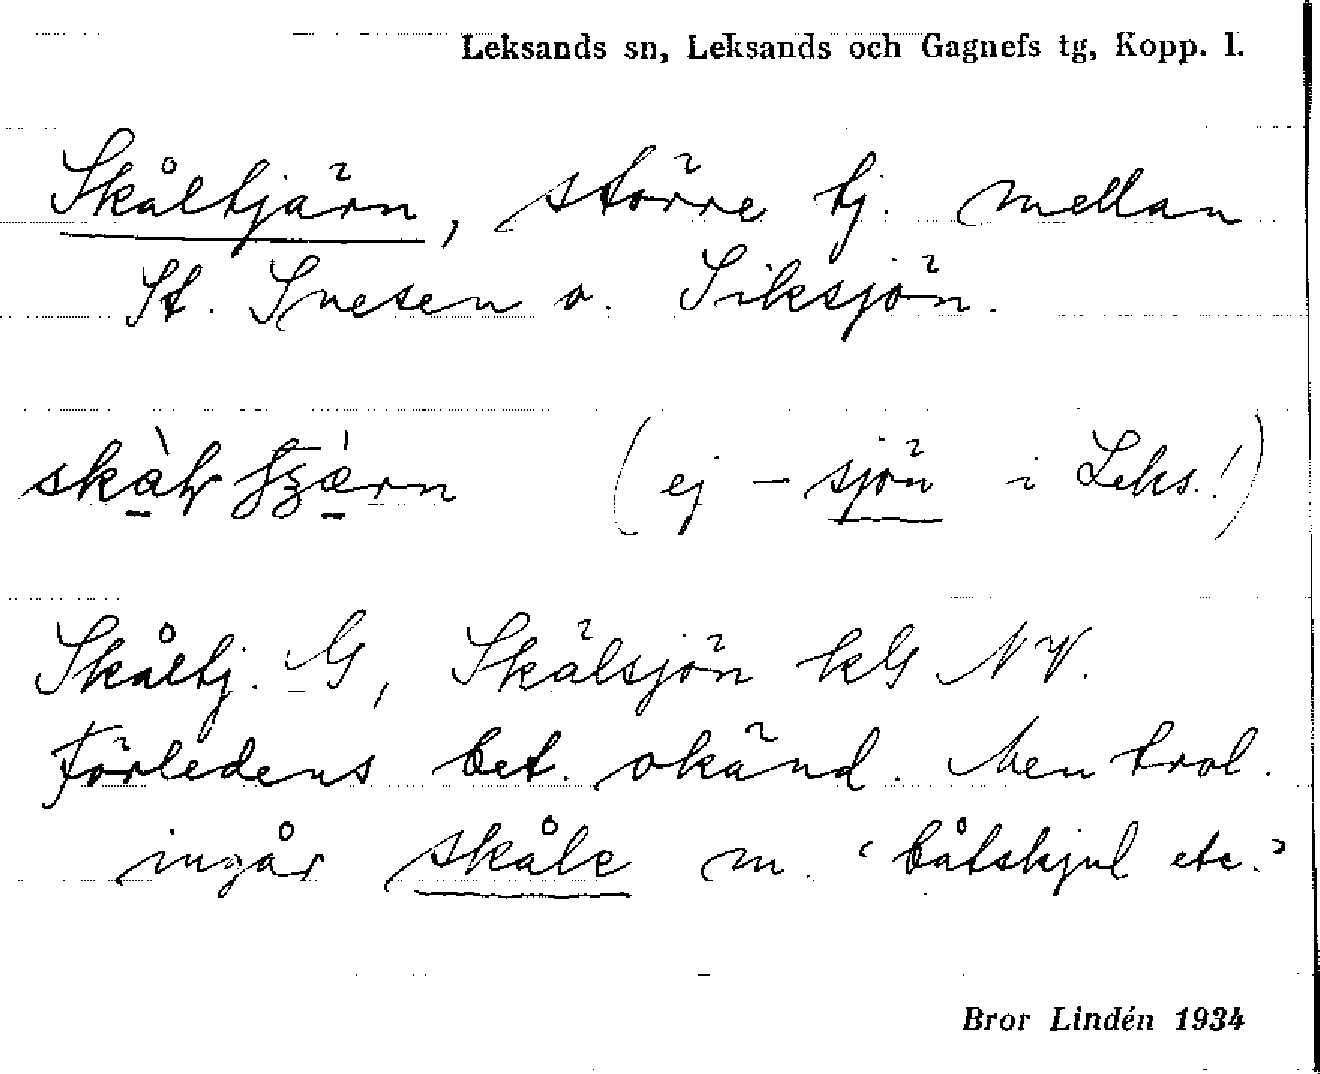 Leksands sn, Leksands och Gagnefs tg, Kopp. l.
Skåltjärn, större tj. mellan
St. Snesen o. Siksjön.
(ej -sjön i Leks.!)
Skåltj. G, Skålsjön kG NV.
Förledens bet. okänd. Men trol.
ingår skåle m. ‘båtskjul etc.’
Bror Lindén 1934